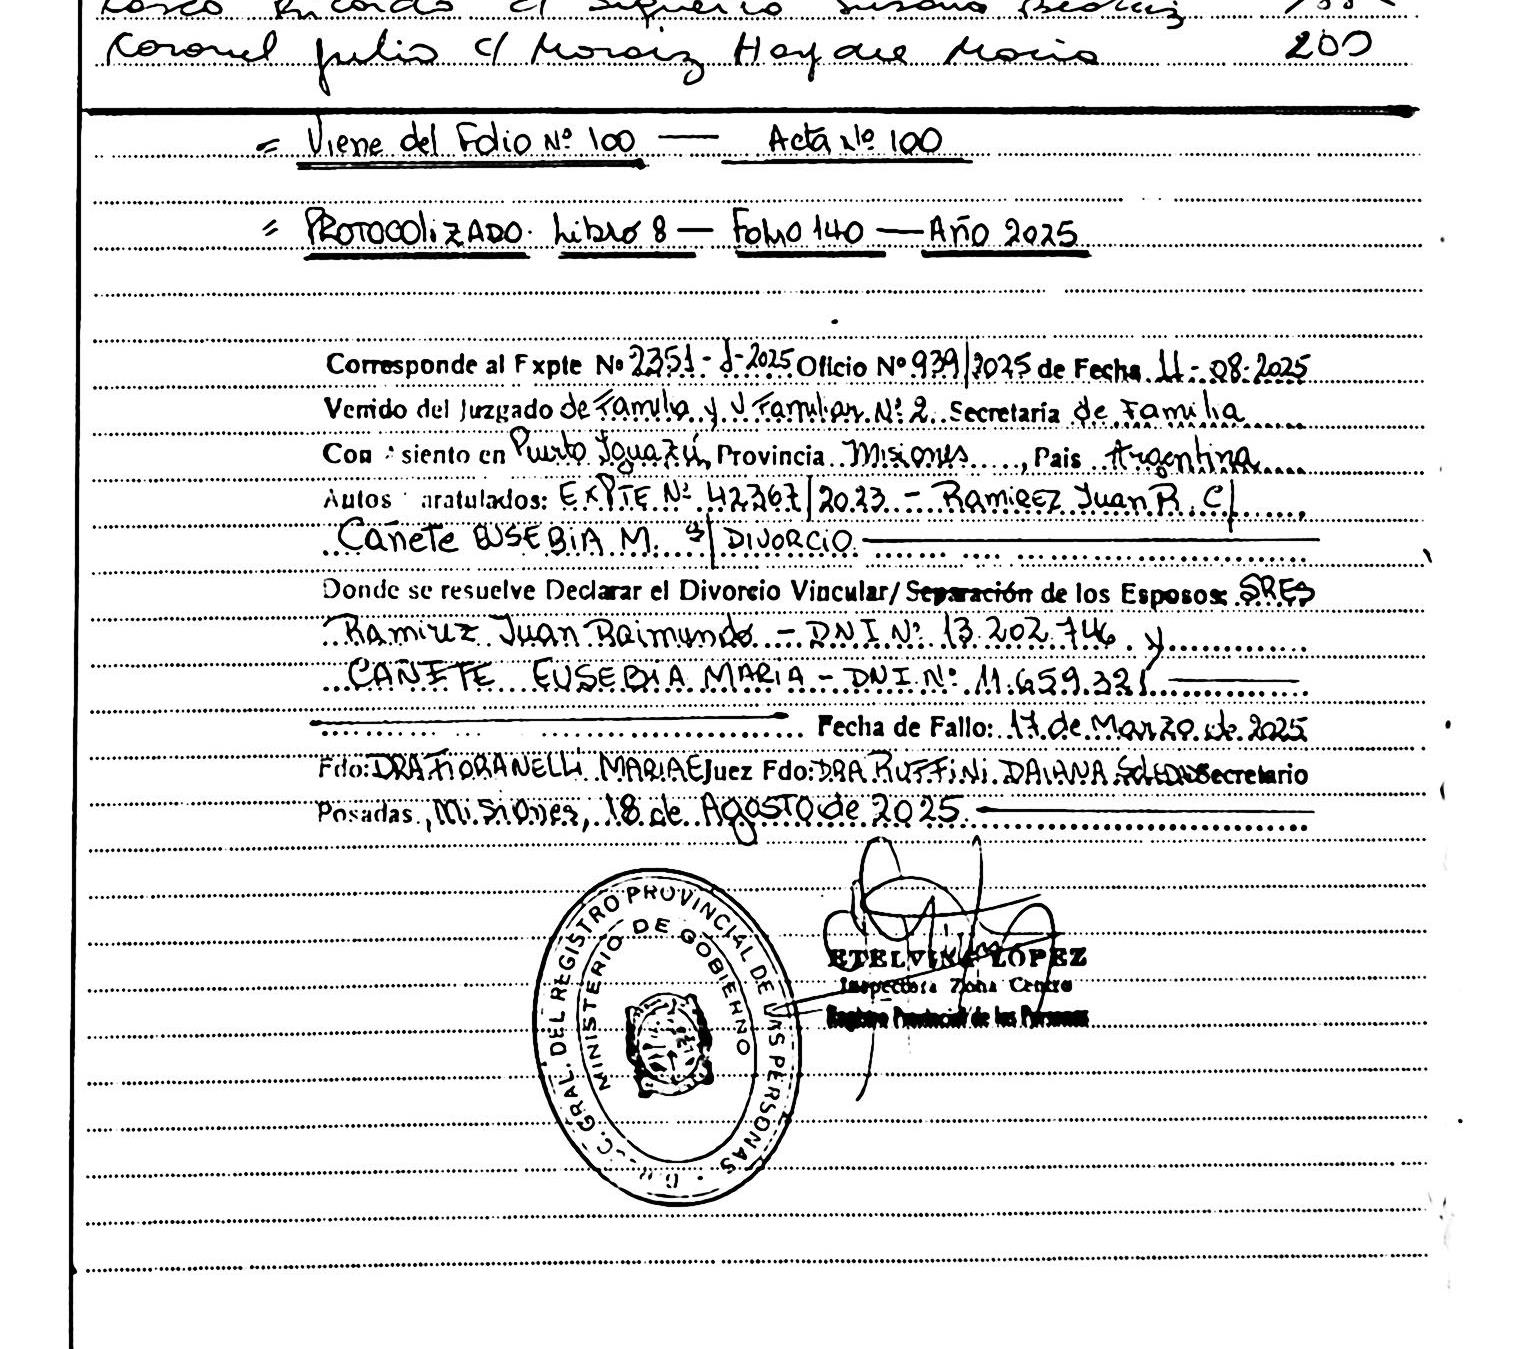 Ricardo c/ Siqueira Susana Beatriz
Coronel Julio c/ Moraiz Haydee Maria 200
= Viene del Folio Nº 100 — Acta Nº 100
= PROTOCOLIZADO. Libro 8 — Folio 140 — Año 2025
Corresponde al Expte Nº 2351-J-2025 Oficio Nº 939/2025 de Fecha 11-08-2025
Venido del Juzgado de Familia y V Familiar Nº 2. Secretaría de Familia
Con siento en Puerto Iguazú, Provincia Misiones, Pais Argentina
Autos aratulados: EXPTE Nº 42367/2023 - RAMIREZ Juan R. C/
Cañete EUSEBIA M. S/ DIVORCIO
Donde se resuelve Declarar el Divorcio Vincular/ Separación de los Esposos: SRES
Ramirez Juan Raimundo - DNI Nº 13.202.746 y
CAÑETE EUSEBIA MARIA - DNI Nº 11.659.321
Fecha de Fallo: 17 de Marzo de 2025
Fdo: DRA FIORANELLI MARIA E Juez Fdo: DRA RUFFINI DAIANA Secretario
Posadas, Misiones, 18 de AGOSTO de 2025
GRAL. DEL REGISTRO PROVINCIAL DE LAS PERSONAS
MINISTERIO DE GOBIERNO
ETELVINA LÓPEZ
Inspectora Zona Centro
Registro Provincial de las Personas